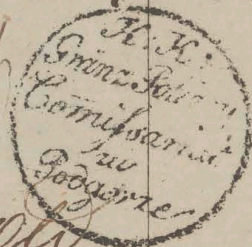 K. K.
Gränz Polizey
Comißariat
zu
Podgorze